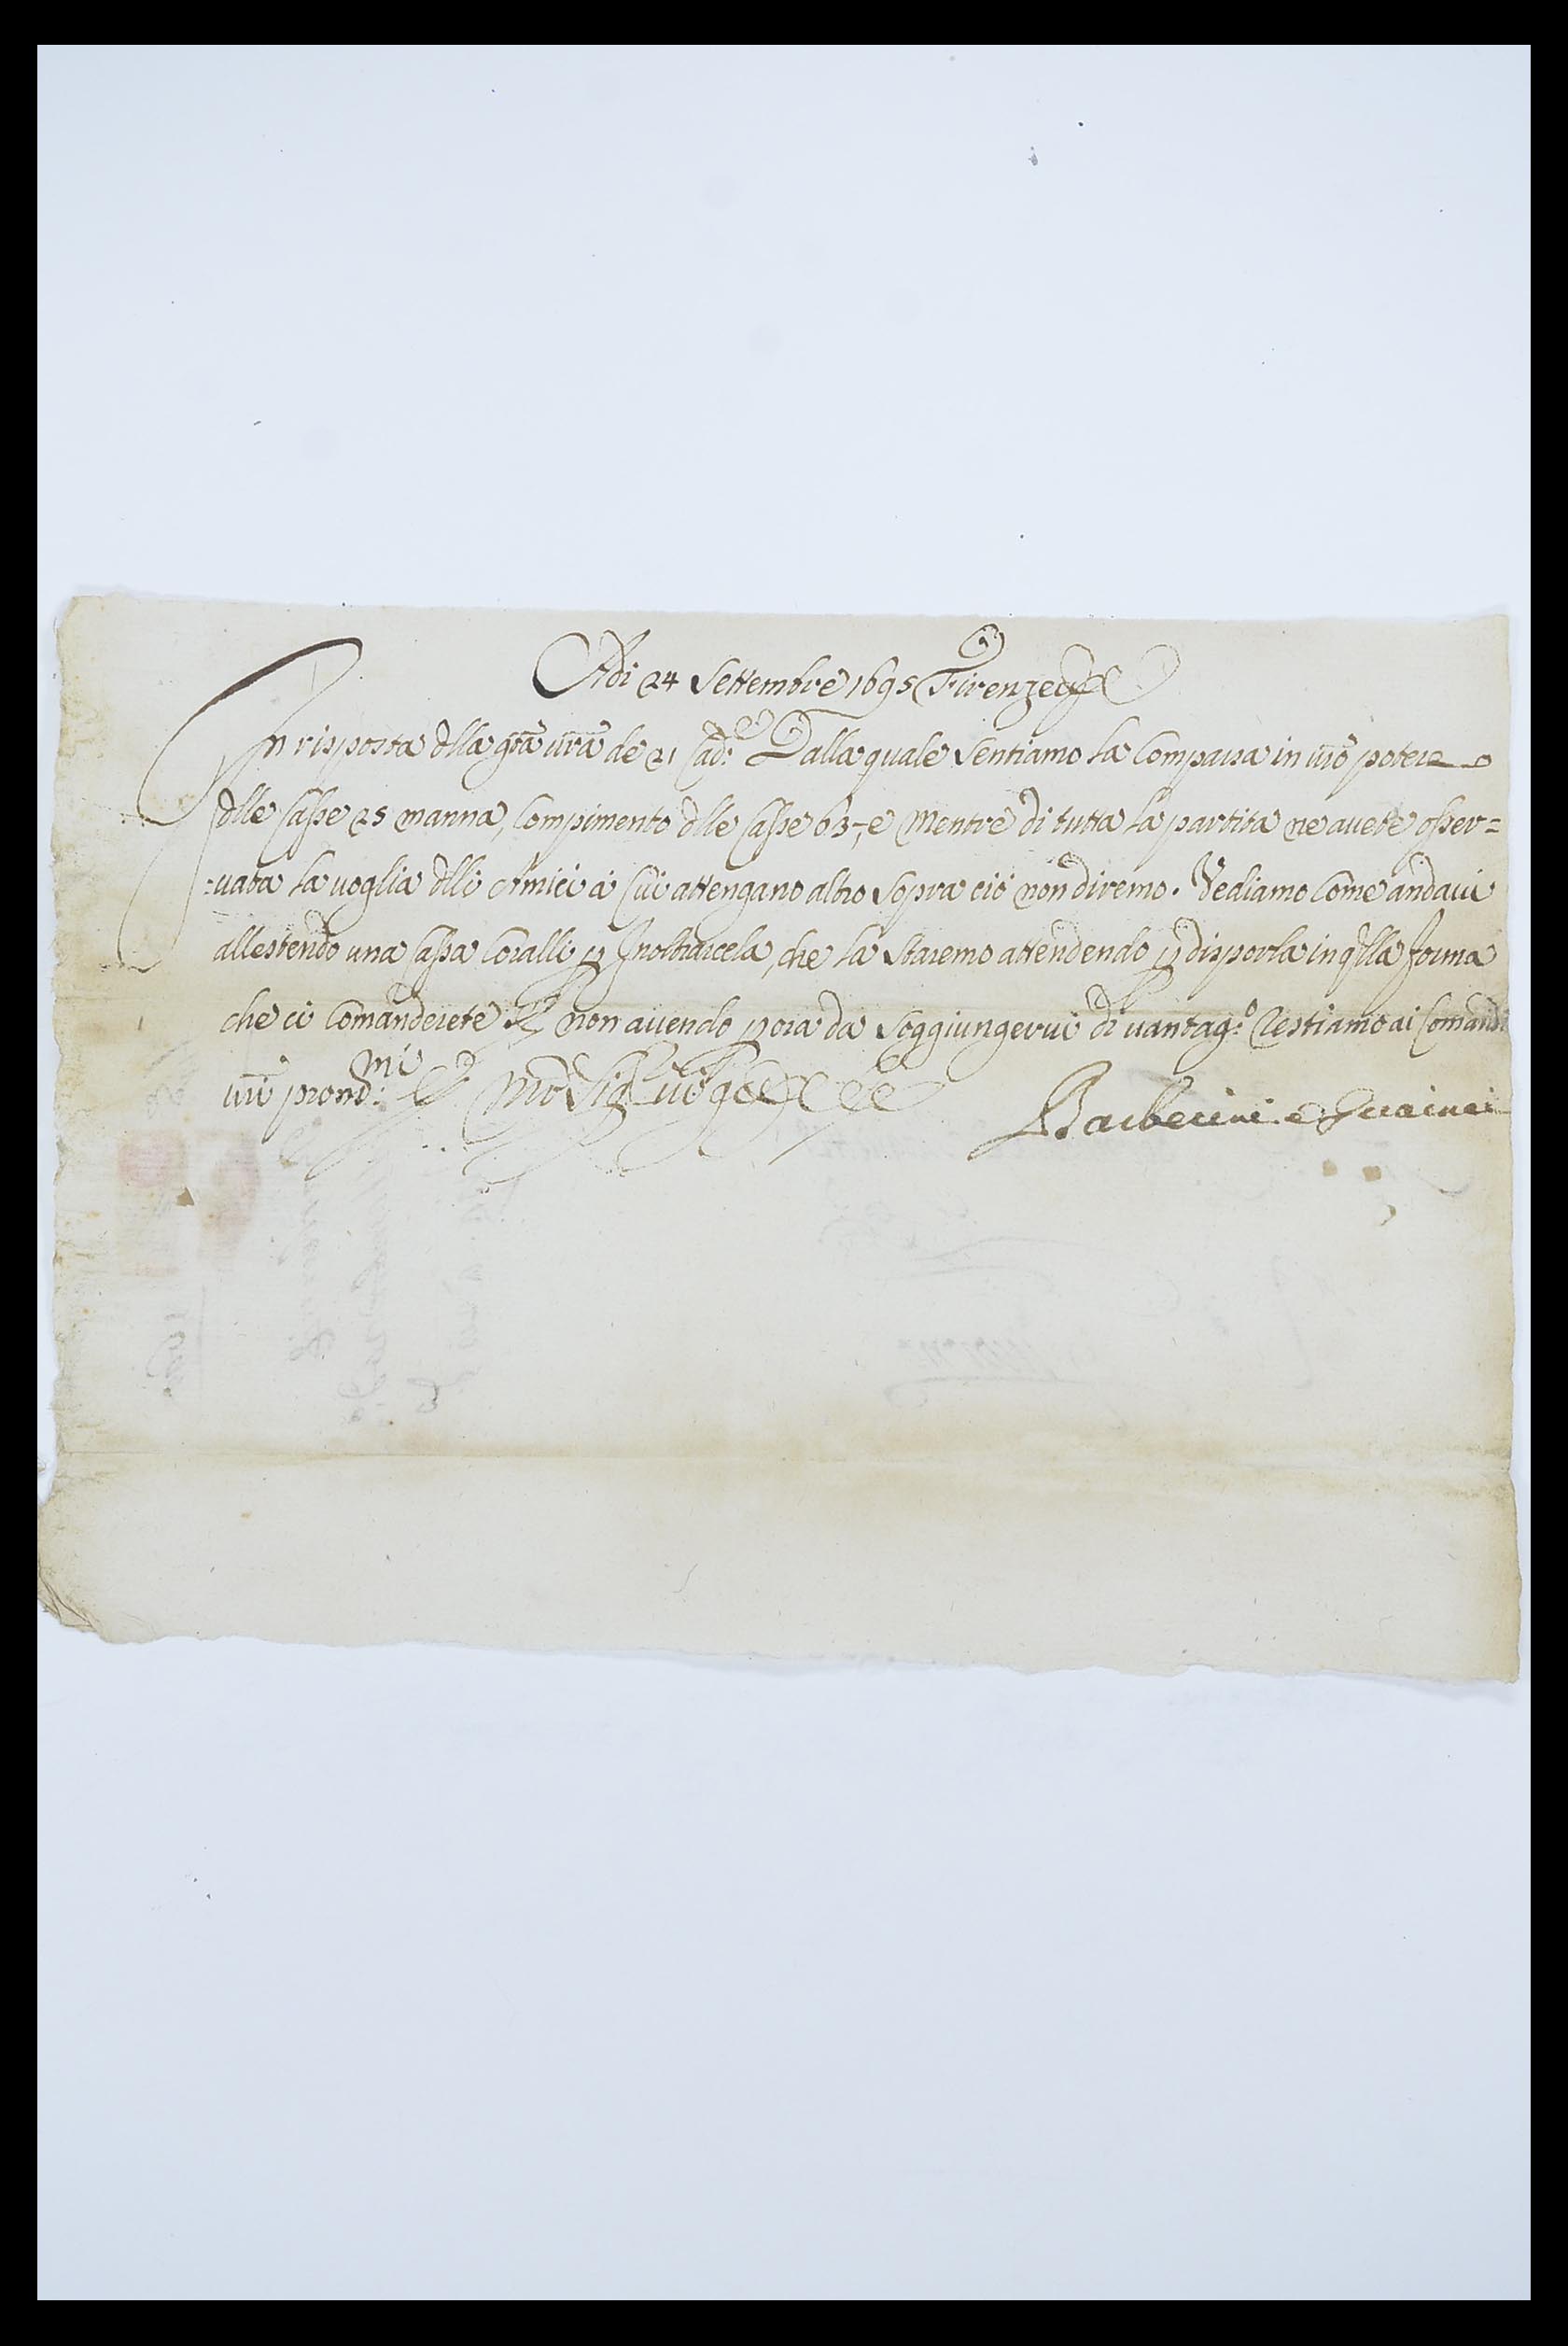 Adi 24 Settembre 1695 Firenze
In risposta dlla grã vrã de 21 Cad.e Dalla quale Sentiamo la Comparsa in vrõ potere
dlle Casse 25 manna, Compimento dlle Casse 63-, e Mentre di tutta la partita ne avete osser=
=vata la voglia dlli Amici à Cui attengano altro Sopra ciò non diremo. Vediamo Come andavi
allestendo una Cassa Coralli p Inoltrarcela, che la Staremo attendendo p disporla in qlla forma
che ci Comanderete E non avendo p ora da Soggiungervi di vantag.o Restiamo ai Comandi
vrĩ pront.mi
Barberini e